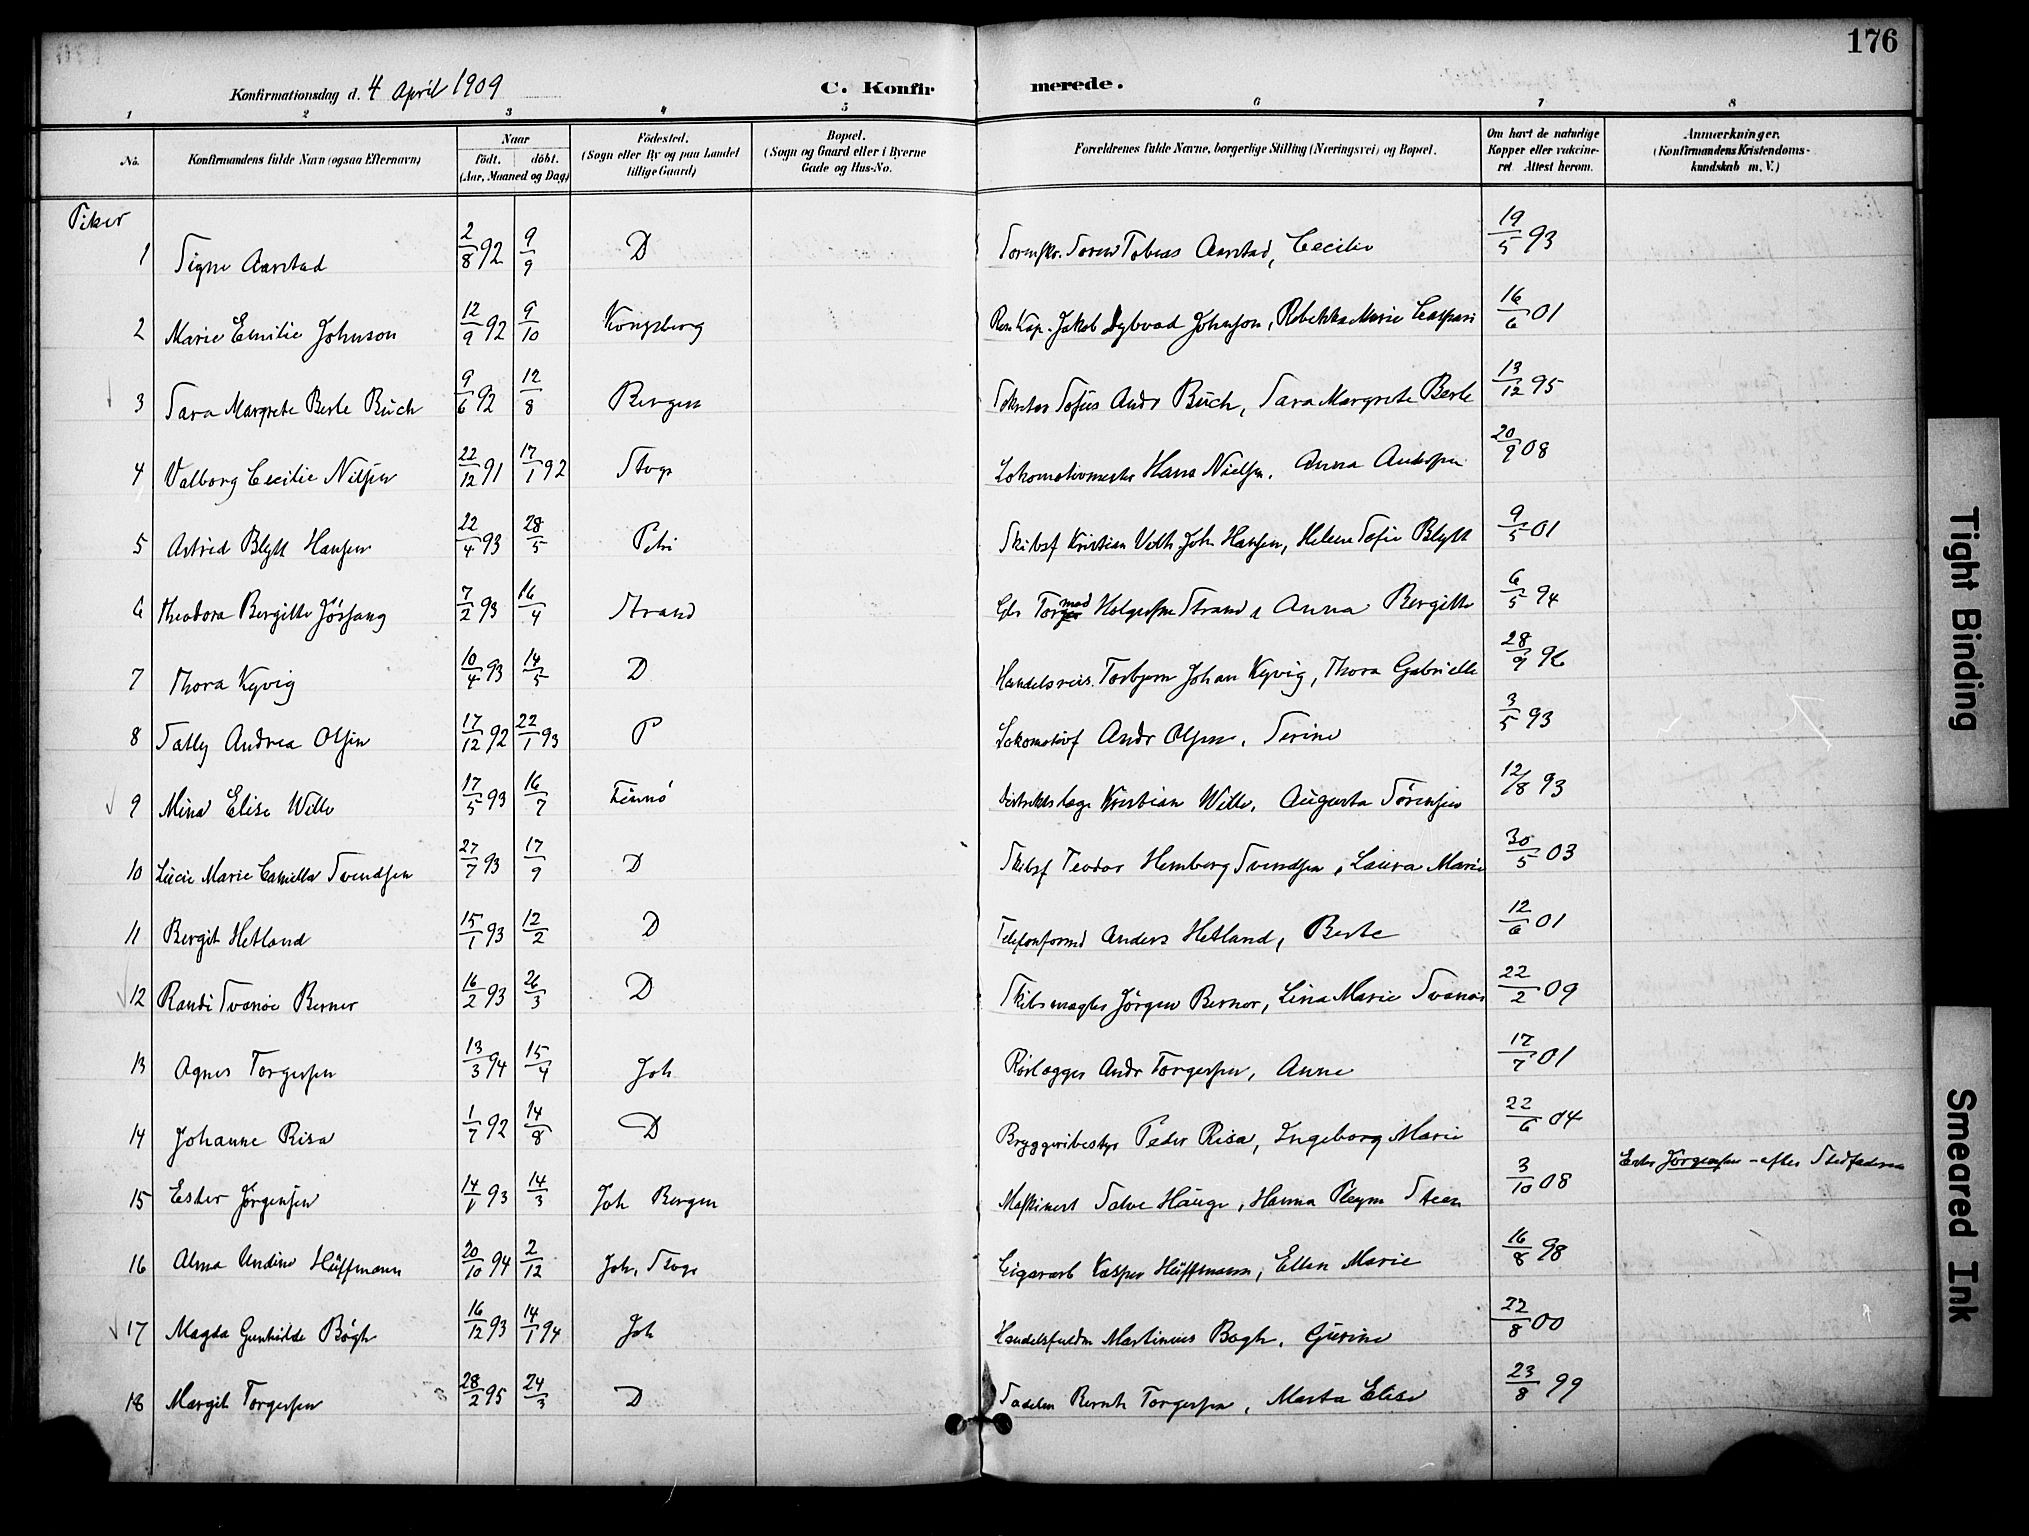 176
Konfirmationsdag d. 4 April 1909
C. Konfirmerede.
1 2 3 4 5 6 7 8
No. Konfirmandens fulde Navn (ogsaa Efternavn) Naar födt. döbt. (Aar, Maaned og Dag) Födested. (Sogn eller By og paa Landet tillige Gaard) Bopæl. (Sogn og Gaard eller i Byerne Gade og Hus-No. Forældrenes fulde Navne, borgerlige Stilling (Næringsvei) og Bopæl. Om havt de naturlige Kopper eller vakcineret. Attest herom. Anmærkninger. (Konfirmandens Kristendomskundskab m. V.)
Piker
1 Signe Aarstad 2/8 92 9/9 D Sorenskr. Soren Tobias Aarstad, Cecilie 19/5 93
2 Marie Emilie Johnson 12/9 92 9/10 Kongsberg Res. Kap. Jakob Dybvad Johnson, Rebekka Marie Caspari 16/6 01
3 Sara Margrete Berle Buch 9/6 92 12/8 Bergen Sofus Andr Buch, Sara Margrete Berle 13/12 95
4 Valborg Cecilie Nilsen 22/12 91 17/1 92 Stvgr Lokomotivmester Hans Nielsen, Anna 20/9 08
5 Astrid Blytt Hansen 22/4 93 28/5 Petri Skibsf Kristian Vilh. Joh. Hansen, Helene Sofie Blytt 9/5 01
6 Theodora Bergitte Jössang 7/2 93 16/4 Strand Tormod Holgersen Strand, Anna Bergitte 6/5 94
7 Thora Kyvig 10/4 93 14/5 D Handelsreis. Torbjørn Johan Kyvig, Thora Gabrielle 28/9 96
8 Sally Andrea Olsen 17/12 92 22/1 93 P Lokomotivf Andr Olsen, Serine 3/5 93
9 Mina Elise Wille 17/5 93 16/7 Finnö Distriktslæge Kristian Wille, Augusta Sörensen 12/8 93
10 Lucie Marie Camilla Svendsen 27/7 93 17/9 D Skibsf Teodor Hemberg Svendsen, Laura Marie 30/5 03
11 Bergit Hetland 15/1 93 12/2 D Telefonformd Anders Hetland, Berte 12/6 01
12 Randi Svanöe Berner 16/2 93 26/3 D Skibsmægler Jörgen Berner, Lina Marie Svanöe 22/2 09
13 Agnes Torgersen 13/3 94 15/4 Joh Rörlægger Andr Torgersen, Anne 17/7 01
14 Johanne Risa 1/7 92 14/8 D Bryggeribestyr Peder Risa, Ingeborg Marie 22/6 04
15 Ester Jörgensen 14/1 93 14/3 Joh Bergen Maskinest Salve Hauge, Hanna Pleym Steen 3/10 08 Ester Jörgensen - efter Stedfaderen
16 Alma Undine Hüffmann 20/10 94 2/12 Joh, Stvgr Cigararb Kasper Hüffmann, Ellen Marie 16/8 98
17 Magda Gunhilde Bögh 16/12 93 14/1 94 Joh Handelsfuldm Martinius Bøgh, Gurine 22/8 00
18 Margit Torgersen 28/2 95 24/3 D Sadelm Bernh Torgersen, Marta Elise 23/8 99
Tight Binding
Smeared Ink